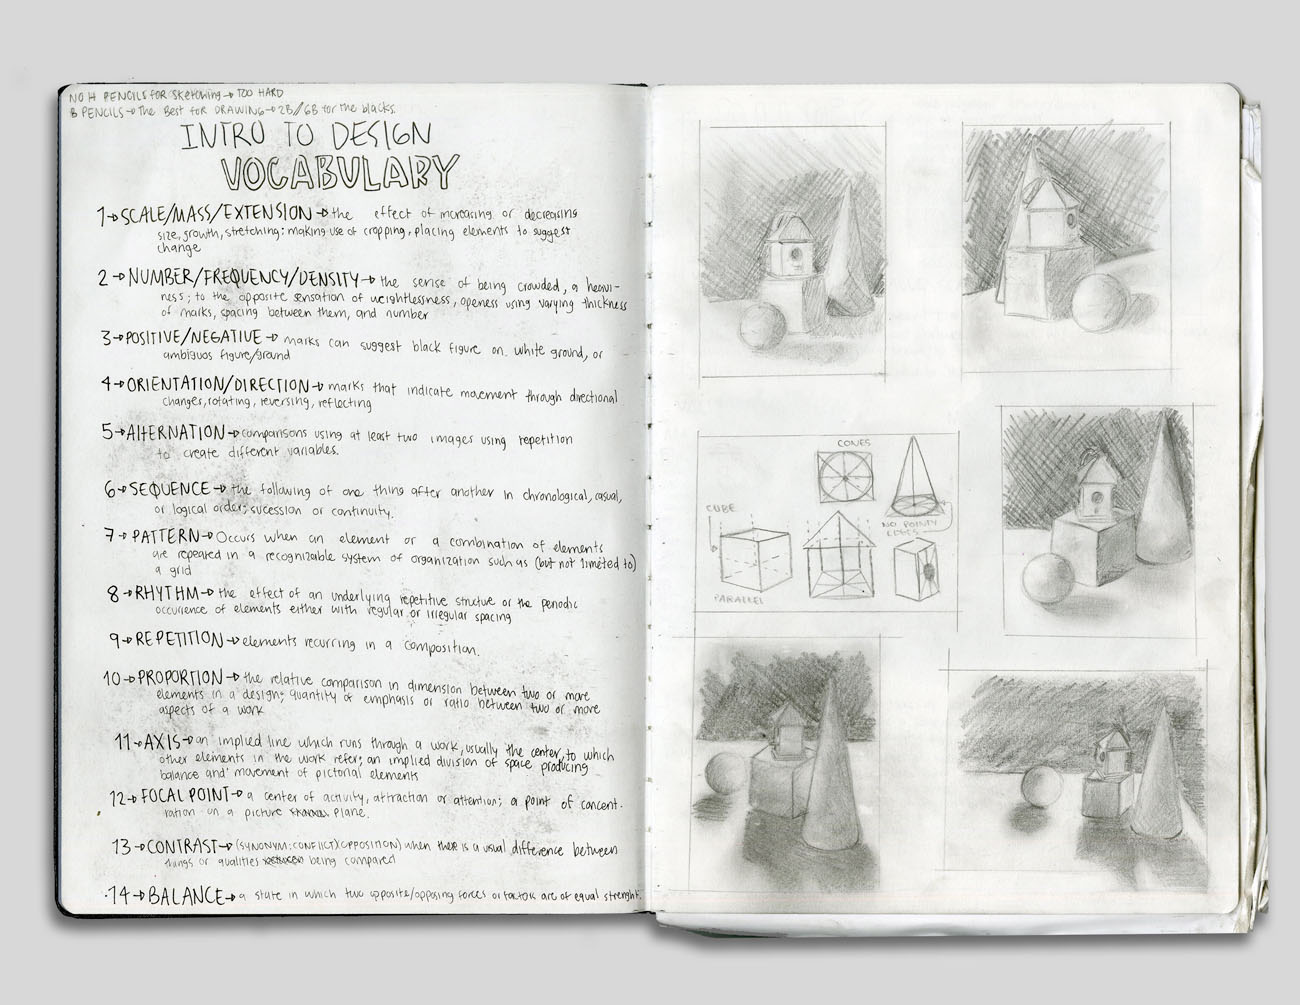 NO H PENCILS for sketching → TOO HARD
B PENCILS → The Best for DRAWING → 2B/6B for the blacks.
INTRO TO DESIGN
VOCABULARY
1→SCALE/MASS/EXTENSION→the effect of increasing or decreasing
size, growth, stretching; making use of cropping, placing elements to suggest
change
2→NUMBER/FREQUENCY/DENSITY→the sense of being crowded, a heavi-
ness; to the opposite sensation of weightlessness, openess using varying thickness
of marks, spacing between them, and number
3→POSITIVE/NEGATIVE→marks can suggest black figure on white ground, or
ambiguos figure/ground
4→ORIENTATION/DIRECTION→marks that indicate movement through directional
changes, rotating, reversing, reflecting
5→AlTERNATION→comparisons using at least two images using repetition
to create different variables.
6→SEQUENCE→the following of one thing after another in chronological, casual,
or logical order; sucession or continuity.
7→PATTERN→Occurs when an element or a combination of elements
are repeated in a recognizable system of organization such as (but not limeted to)
a grid
8→RHYTHM→the effect of an underlying repetitive structure or the periodic
occurence of elements either with regular or irregular spacing
9→REPETITION→elements recurring in a composition.
10→PROPORTION→the relative comparison in dimension between two or more
elements in a design; quantity of emphasis or ratio between two or more
aspects of a work
11→AXIS→an implied line which runs through a work, usually the center, to which
other elements in the work refer; an implied division of space producing
balance and movement of pictorial elements
12→FOCAL POINT→a center of activity, attraction or attention; a point of concent-
ration on a picture plane.
13→CONTRAST→(SYNONYM:CONFLICT)(OPPOSITION) when there is a usual difference between
things or qualities being compared
14→BALANCE→a state in which two opposite/opposing forces or factors are of equal strenght.
CONES
CUBE
NO POINTY
EDGES
PARALLEL